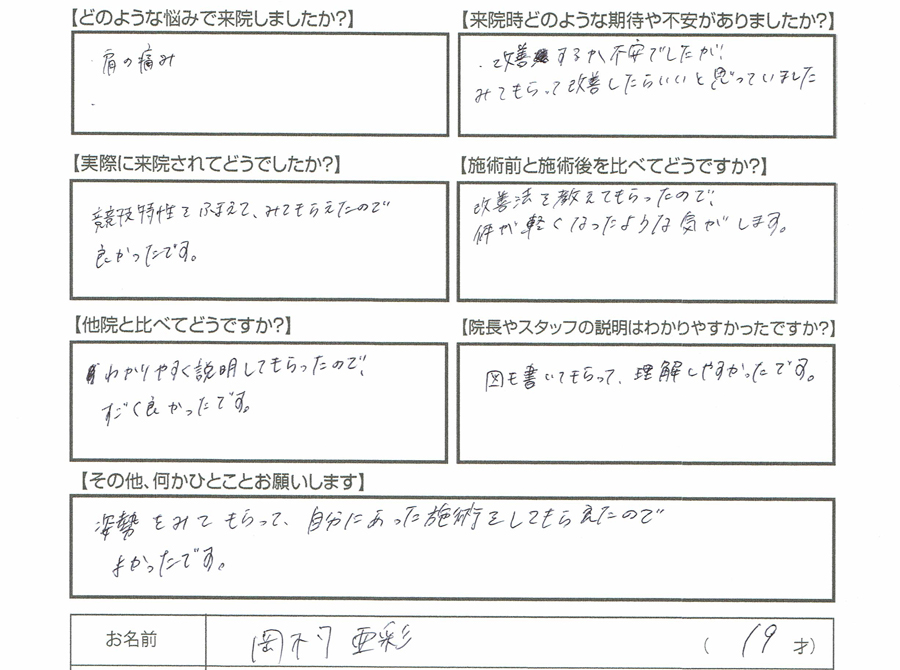 【どのような悩みで来院しましたか?】
・肩の痛み
・
【来院時どのような期待や不安がありましたか?】
・改善するか不安でしたが、
みてもらって改善したらいいと思っていました
【実際に来院されてどうでしたか?】
競技特性をふまえて、みてもらえたので
良かったです。
【施術前と施術後を比べてどうですか?】
改善法を教えてもらったので、
体が軽くなったような気がします。
【他院と比べてどうですか?】
わかりやすく説明してもらったので、
すごく良かったです。
【院長やスタッフの説明はわかりやすかったですか?】
図も書いてもらって、理解しやすかったです。
【その他、何かひとことお願いします】
姿勢をみてもらって、自分にあった施術をしてもらえたので
よかったです。
お名前 岡村 亜彩 (19才)